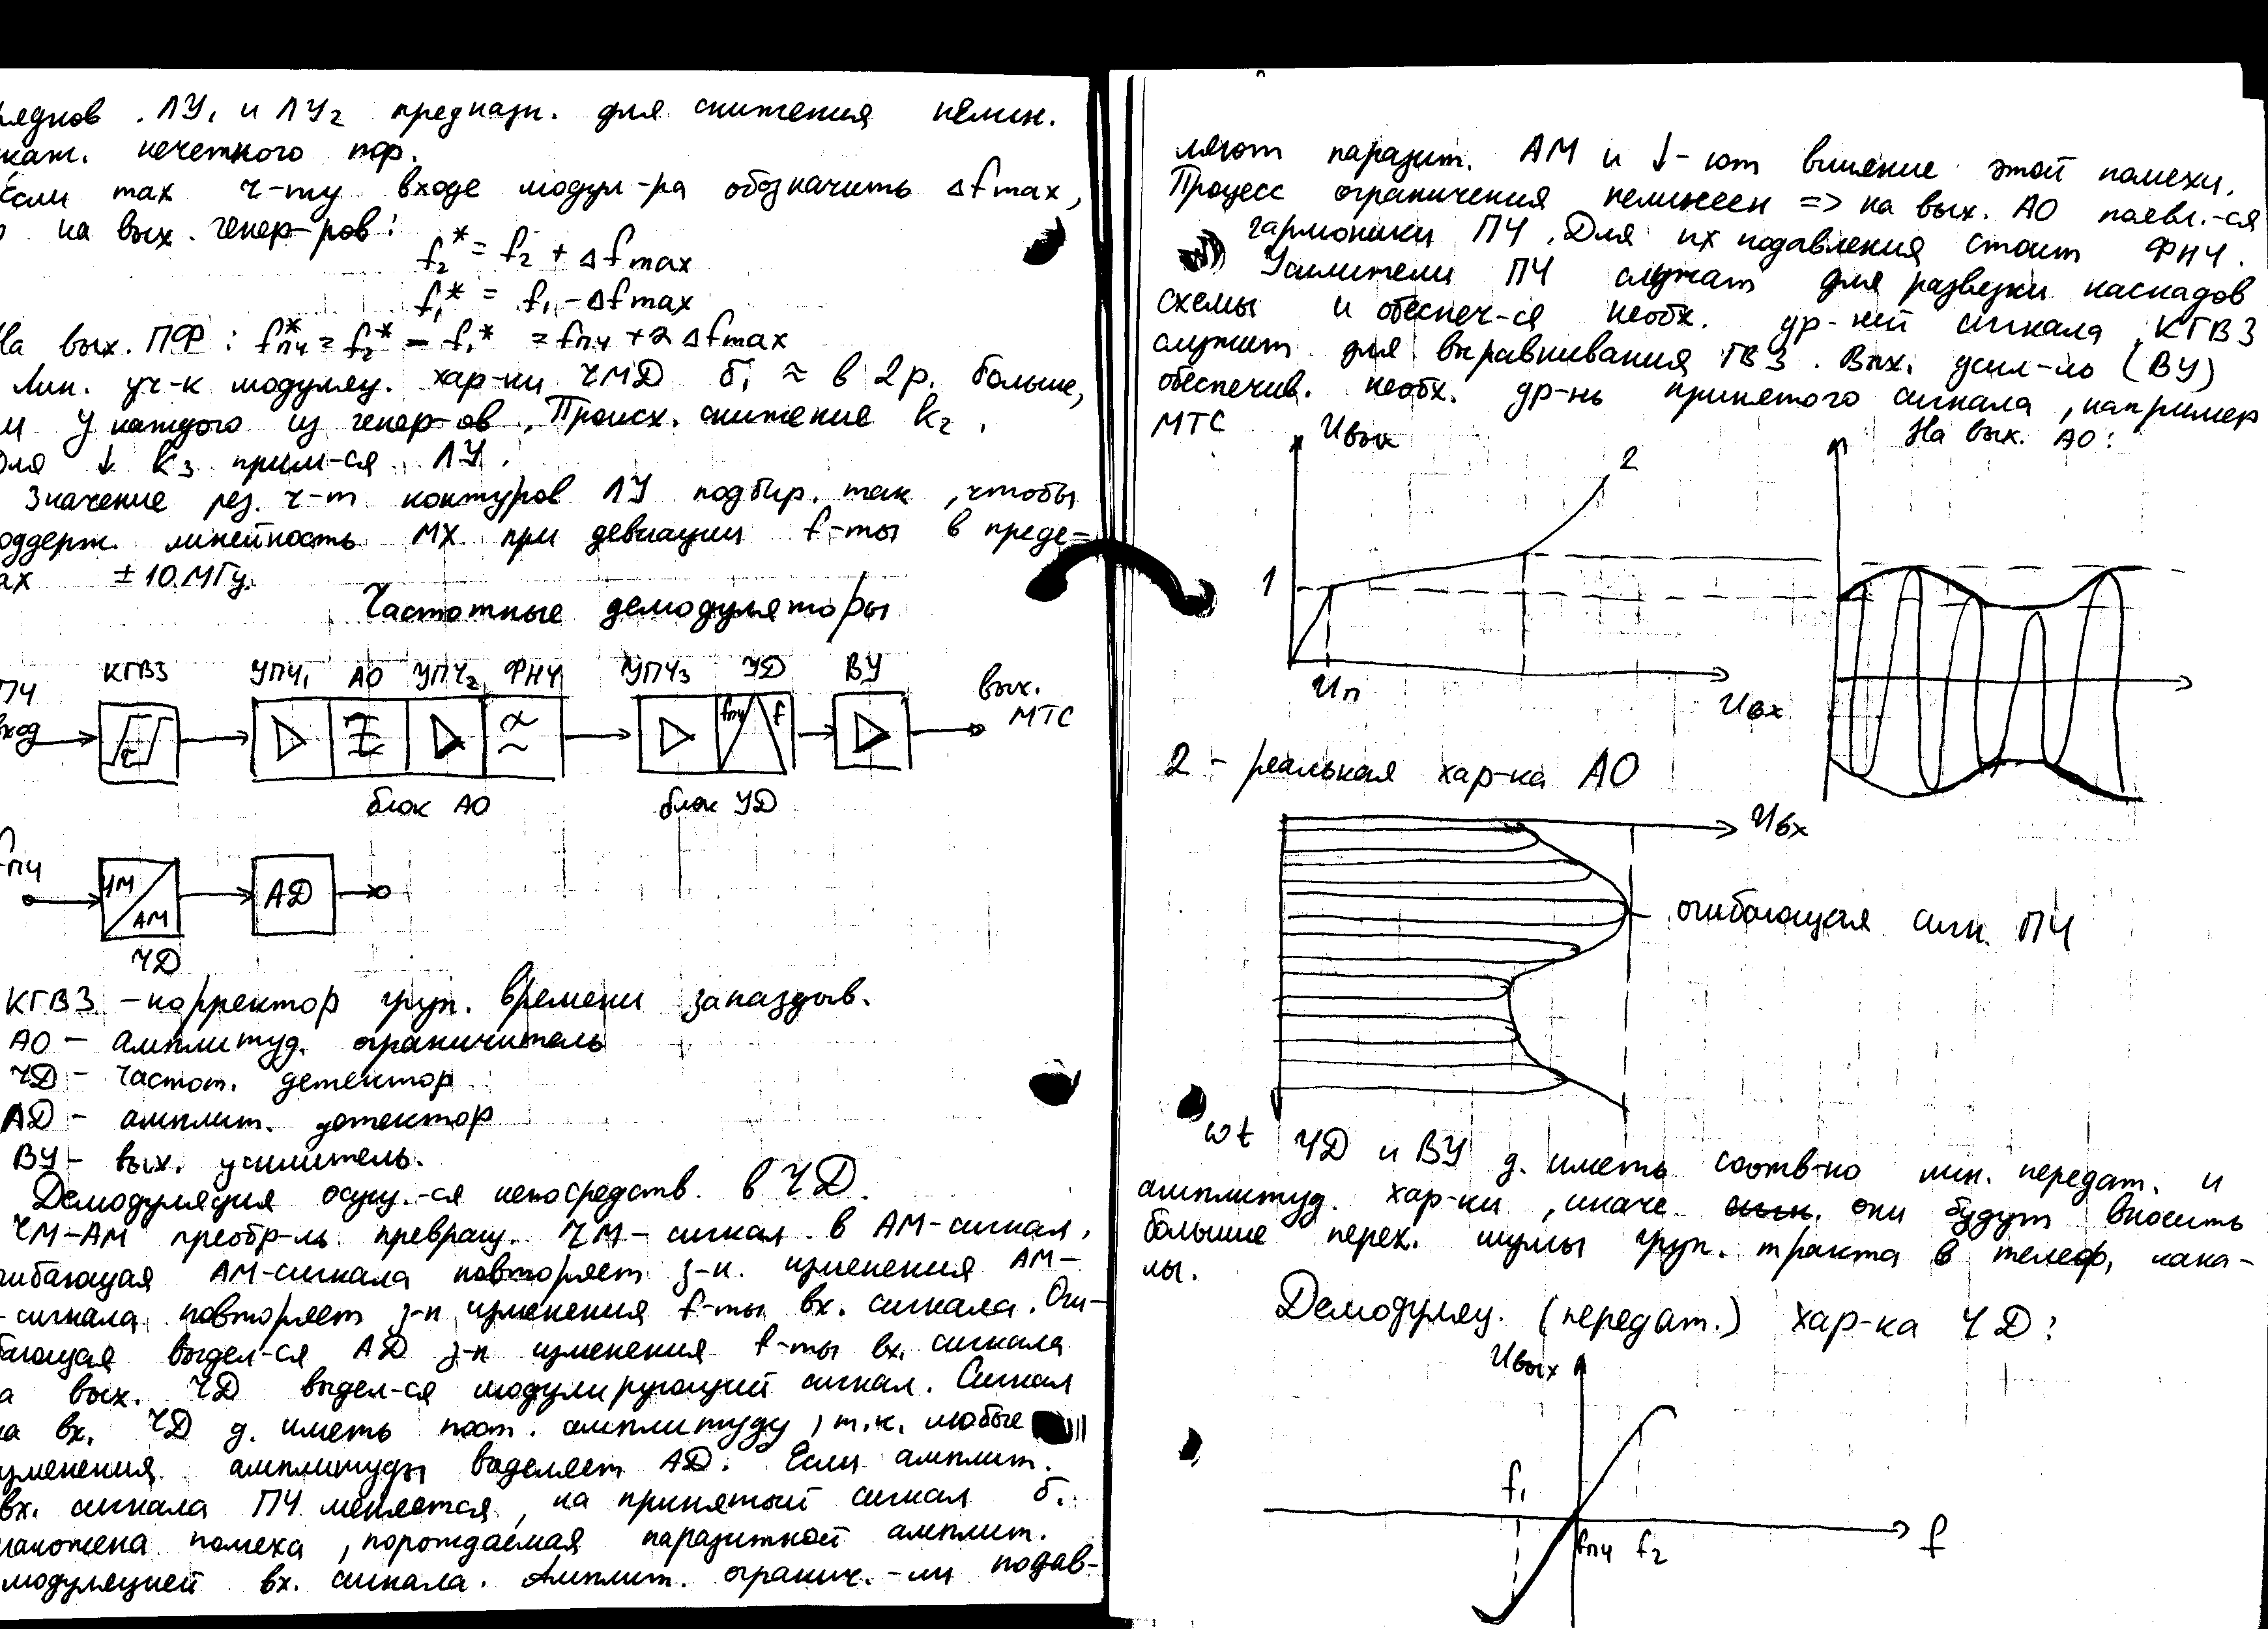 рядков. ЛУ₁ и ЛУ₂ предназн. для снижения нелин.
искаж. нечетного пор.
Если max ч-ту входе модул-ра обозначить Δfmax,
на вых. генер-ров:
f₂* = f₂ + Δfmax
f₁* = f₁ - Δfmax
На вых. ПФ: f*пч = f₂* - f₁* = fпч + 2Δfmax
Лин. уч-к модуляц. хар-ки ЧМД б. ≈ в 2р. больше,
у каждого из генер-ов. Происх. снижение k₂.
Для ↓ k₃ прим-ся ЛУ.
Значение рез. ч-т контуров ЛУ подбир. так, чтобы
поддерж. линейность МХ при девиации f-ты в преде-
лах ± 10 МГц.
Частотные демодуляторы
КГВЗ УПЧ₁ АО УПЧ₂ ФНЧ УПЧ₃ ЧД ВУ
ПЧ
вход
τ
fпч f
вых.
МТС
блок АО блок ЧД
ПЧ
ЧМ
АМ
АД
ЧД
КГВЗ - корректор груп. времени запаздыв.
АО - амплитуд. ограничитель
ЧД - частот. детектор
АД - амплит. детектор
ВУ - вых. усилитель.
Демодуляция осущ.-ся непосредств. в ЧД.
ЧМ-АМ преобр-ль превращ. ЧМ-сигнал в АМ-сигнал,
огибающая АМ-сигнала повторяет з-н. изменения АМ-
-сигнала повторяет з-н изменения f-ты вх. сигнала. Оги-
бающая выдел-ся АД з-н изменения f-ты вх. сигнала
на вых. ЧД выдел-ся модулирующий сигнал. Сигнал
на вх. ЧД д. иметь пост. амплитуду, т.к. любые
изменения амплитуды выделяет АД. Если амплит.
вх. сигнала ПЧ меняется, на принятый сигнал б.
наложена помеха, порождаемая паразитной амплит.
модуляцией вх. сигнала. Амплит. огранич.-ли подав-
ляют паразит. АМ и ↓-ют влияние этой помехи.
Процесс ограничения нелинеен => на вых. АО появл.-ся
гармоники ПЧ. Для их подавления стоит ФНЧ.
Усилители ПЧ служат для развязки каскадов
схемы и обеспеч-ся необх. ур-ней сигнала. КГВЗ
служит для выравнивания ГВЗ. Вых. усил-ль (ВУ)
обеспечив. необх. ур-нь принятого сигнала, например
МТС
Uвых
2
1
Uп
Uвх
На вых. АО:
2 - реальная хар-ка АО
Uвх
огибающая сигн. ПЧ
ωt
ЧД и ВУ д. иметь соотв-но лин. передат. и
амплитуд. хар-ки, иначе они будут вносить
большие перех. шумы груп. тракта в телеф. кана-
лы.
Демодуляц. (передат.) хар-ка ЧД:
Uвых
f₁
fпч f₂
f